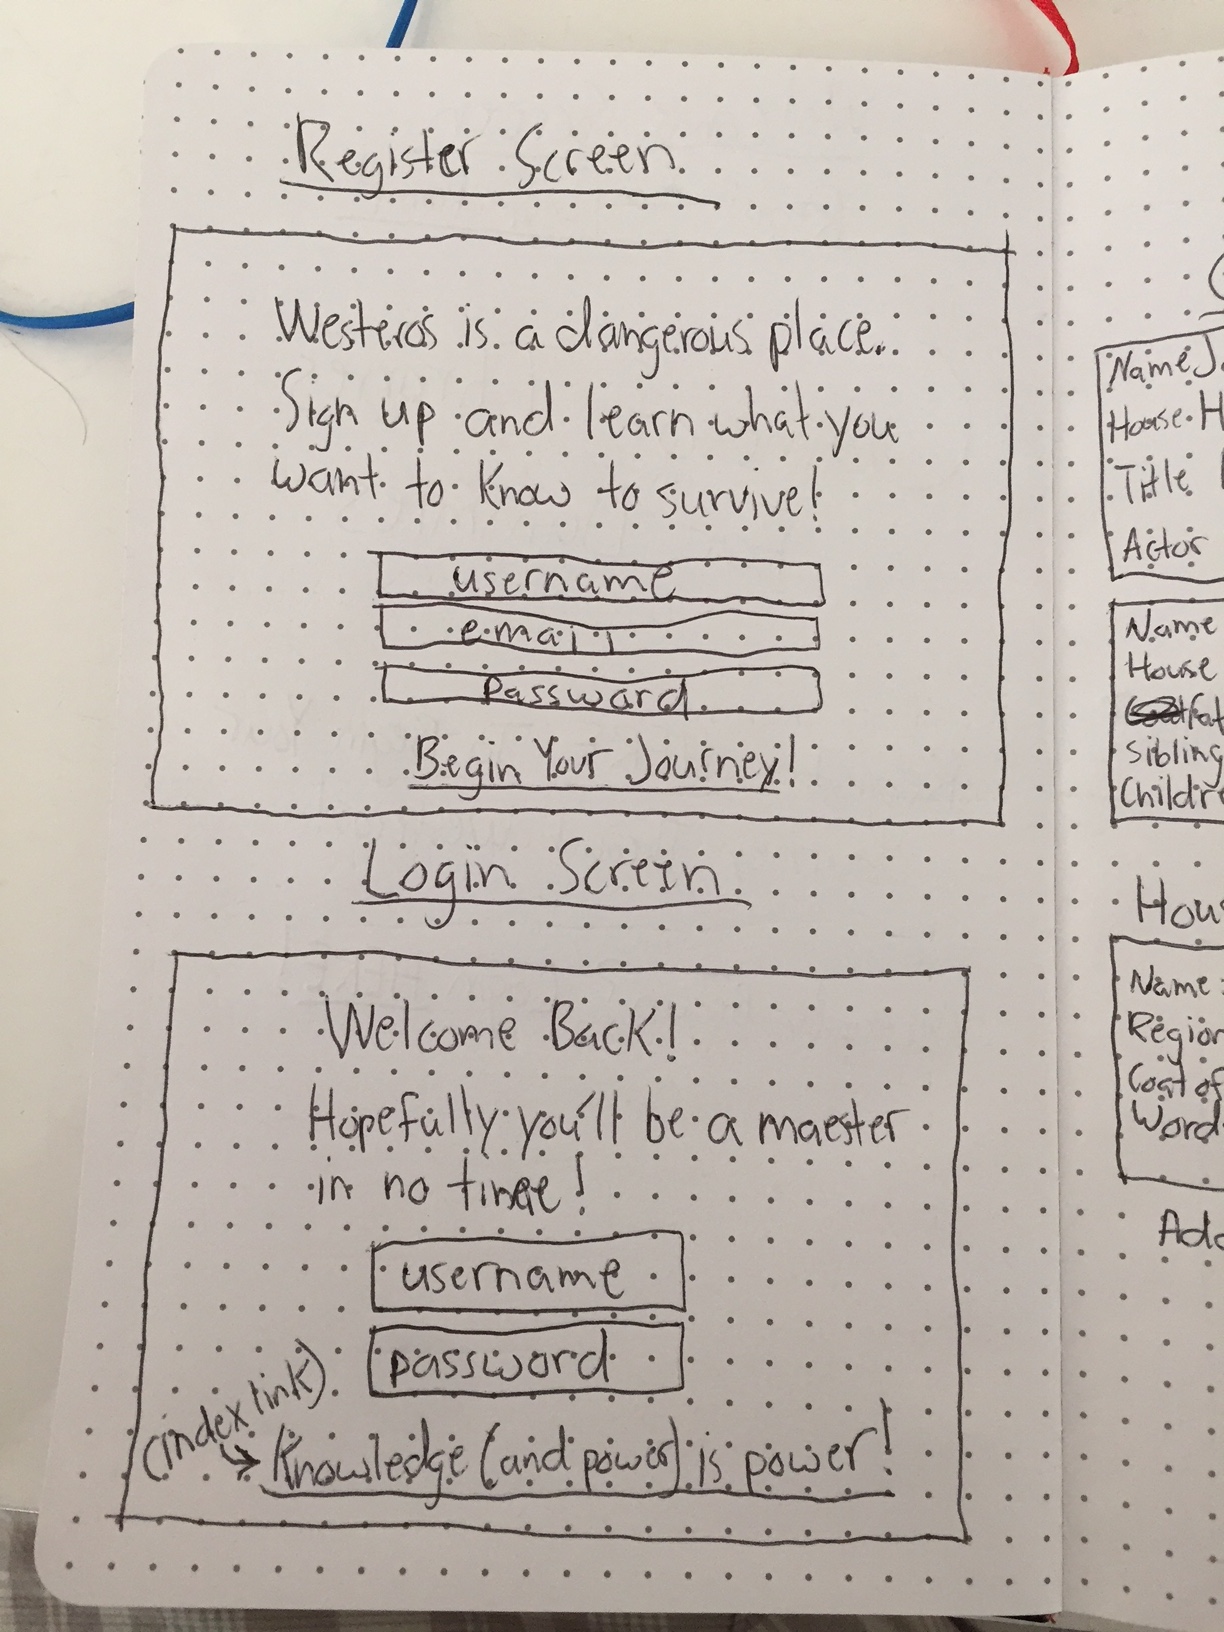 Register Screen
Westeros is a dangerous place.
Sign up and learn what you
want to know to survive!
username
email
password
Begin Your Journey!
Login Screen
Welcome Back!
Hopefully you'll be a maester
in no time!
username
password
(index link)
Knowledge (and power) is power!
Name
House
Title
Actor
Name
House
Name:
Add